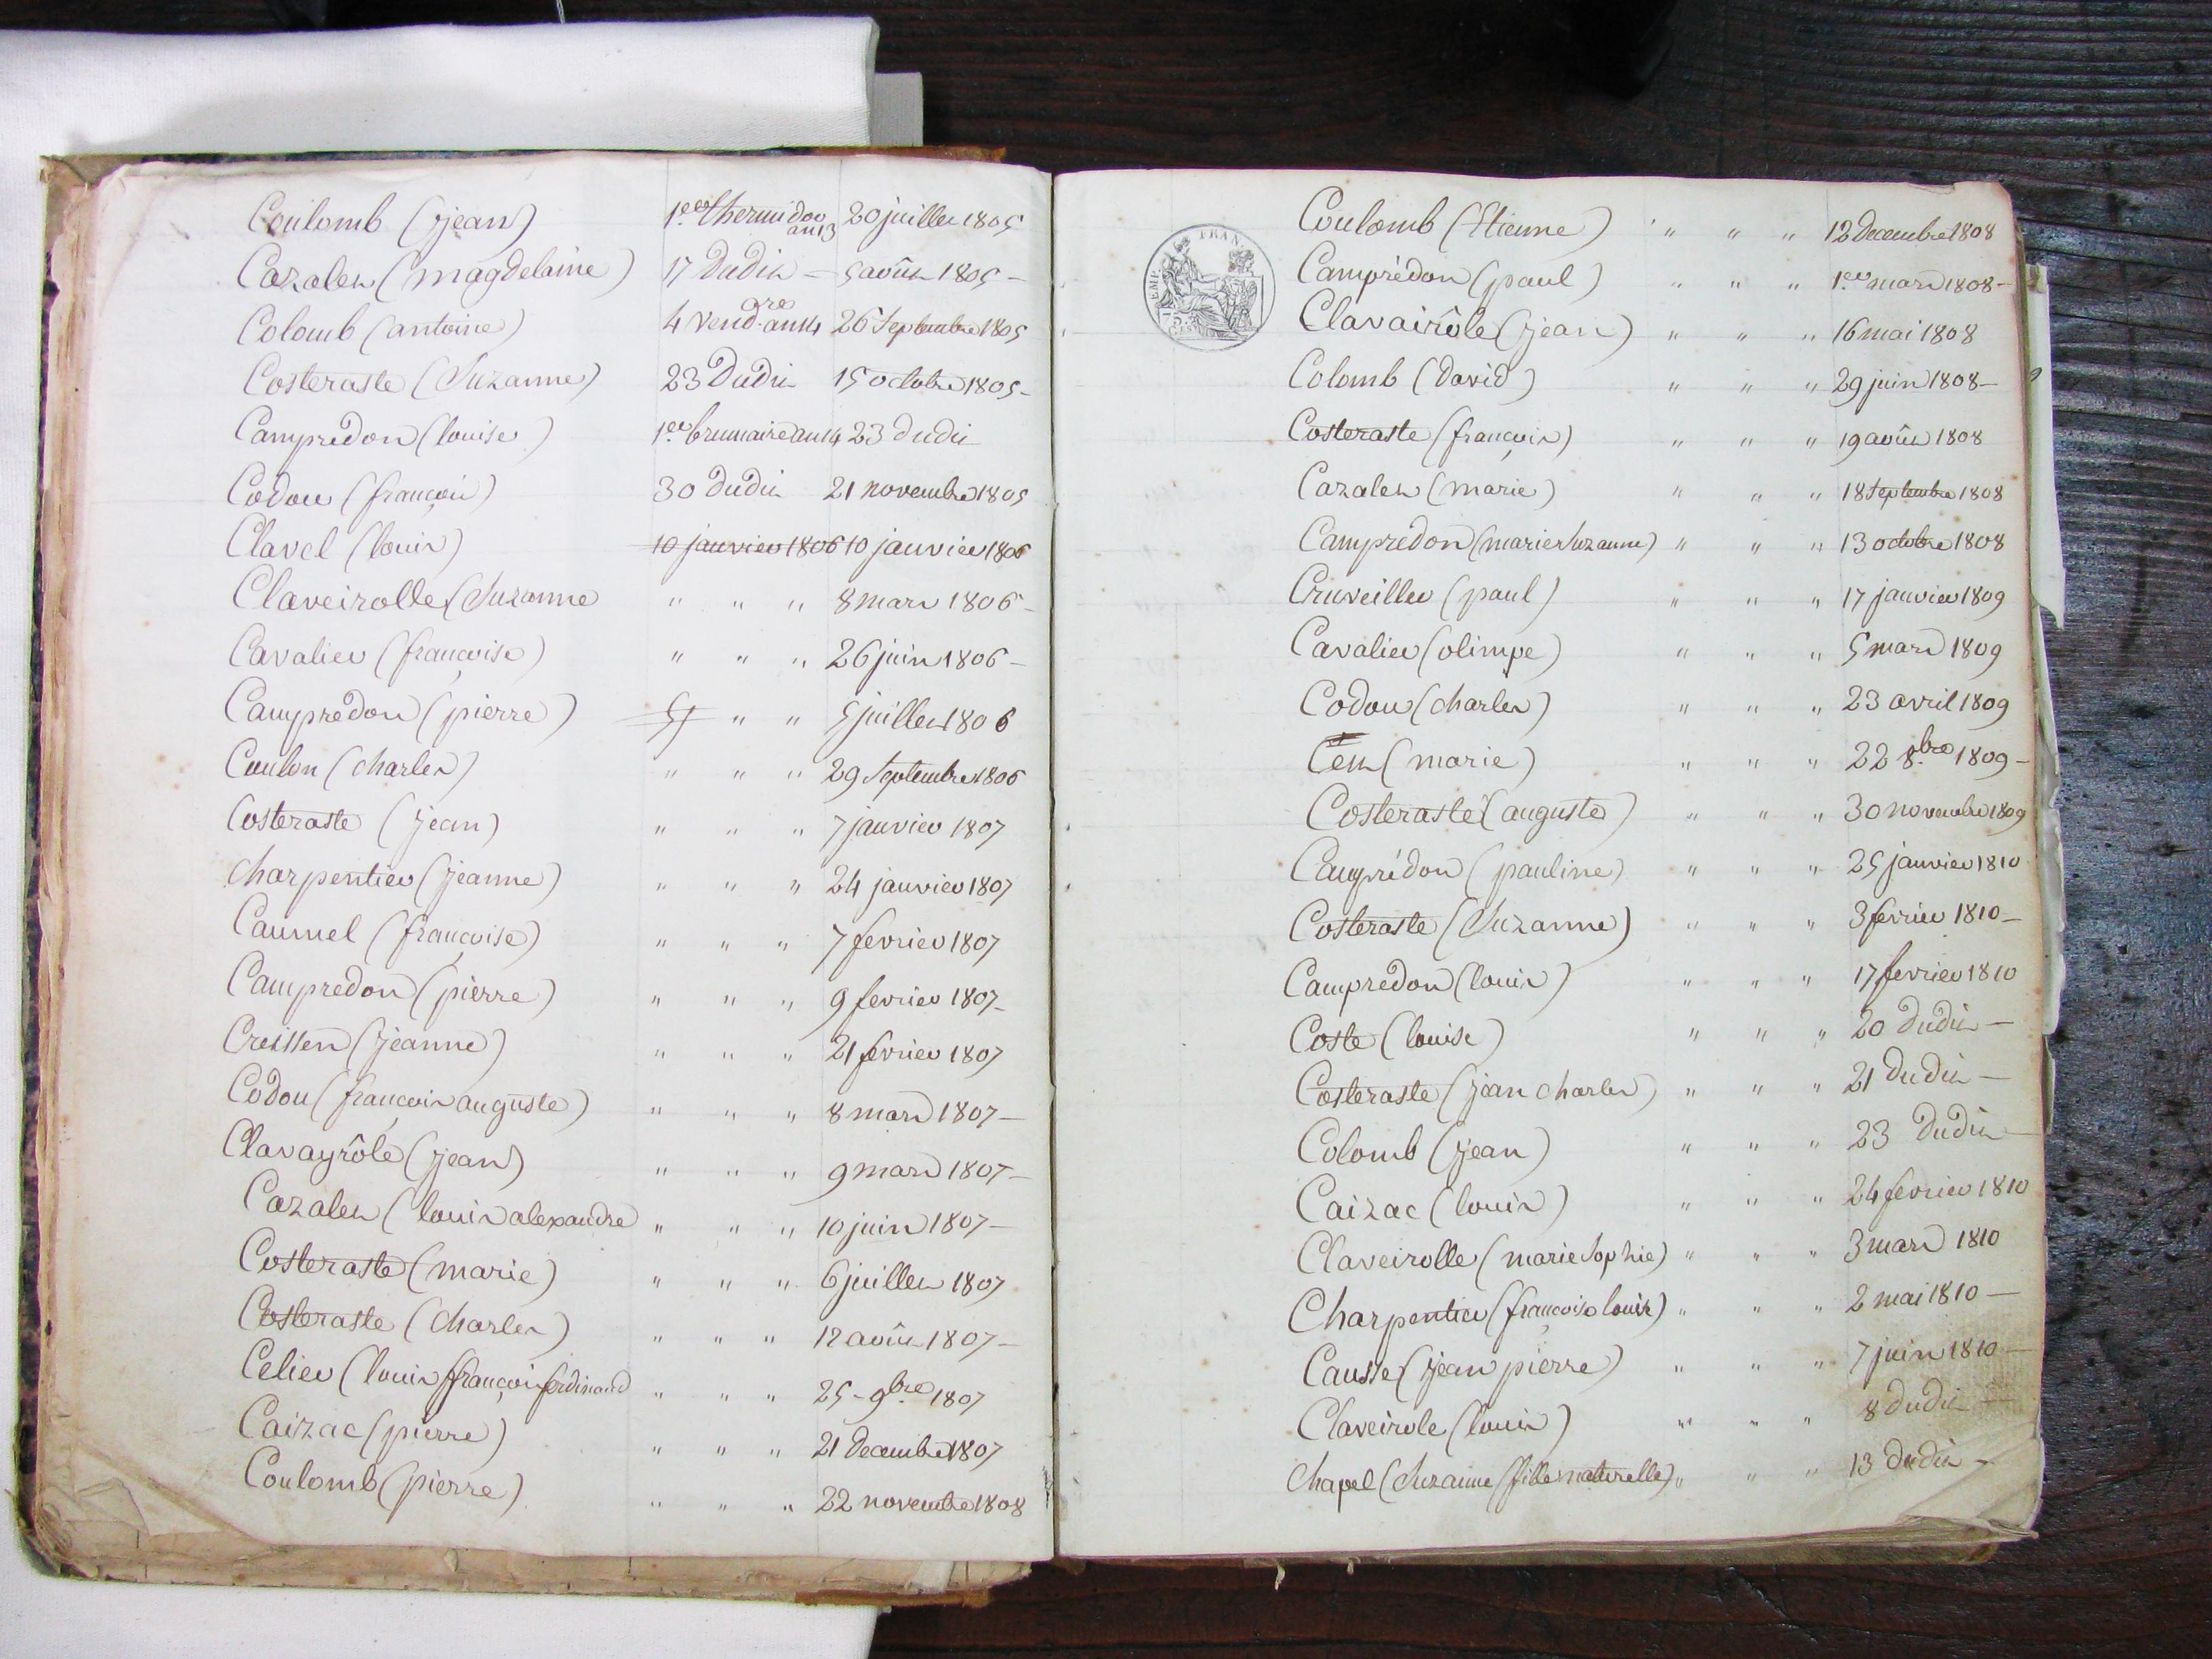 Coulomb (jean) 1.er thermidor an 13 20 juillet 1805
Cazalet (magdelaine) 17 dudit — 5 août 1805 —
Colomb (antoine) 4 vend.are an 14 26 Septembre 1805
Costeraste (Suzanne) 23 dudit 15 octobre 1805 -
Campredon (louise) 1.er brumaire an 14 23 dudit
Codou (françois) 30 dudit 21 novembre 1805
Clavel (louis) 10 janvier 1806 10 janvier 1806
Claveirolle (Suzanne " " " 8 mars 1806 -
Cavalier (françoise) " " " 26 juin 1806 -
Campredon (pierre) " " 5 juillet 1806
Coulon (charles) " " " 29 Septembre 1806
Costeraste (jean) " " " 7 janvier 1807
Charpentier (jeanne) " " " 24 janvier 1807
Caumel (françoise) " " " 7 fevrier 1807
Campredon (pierre) " " " 9 fevrier 1807 -
Creissen (jeanne) " " " 21 fevrier 1807
Codou (françois auguste) " " " 8 mars 1807 —
Clavayrôle (jean) " " " 9 mars 1807 —
Cazalet (louis alexandre " " " 10 juin 1807 —
Costeraste (marie) " " " 6 juillet 1807
Costeraste (charles) " " " 12 août 1807 —
Celier (louis françois ferdinand " " " 25 - 9.bre 1807
Caizac (pierre) " " " 21 decembre 1807
Coulomb (pierre) " " " 22 novembre 1808
TIMB. EMP. FRAN.
Coulomb (Etienne) " " " 12 decembre 1808
Camprédon (paul) " " " 1.er mars 1808 -
Clavairôle (jean) " " " 16 mai 1808
Colomb (david) " " " 29 juin 1808 —
Costeraste (françois) " " " 19 août 1808
Cazalet (marie) " " " 18 Septembre 1808
Campredon (marie Suzanne) " " " 13 octobre 1808
Cruveiller (paul) " " " 17 janvier 1809
Cavalier (olimpe) " " " 5 mars 1809
Codou (charles) " " " 23 avril 1809
(marie) " " " 22 8.bre 1809 -
Costeraste (auguste) " " " 30 novembre 1809
Camprédon (pauline) " " " 25 janvier 1810
Costeraste (Suzanne) " " " 3 fevrier 1810 —
Campredon (louis) " " " 17 fevrier 1810
Coste (louise) " " " 20 dudit —
Costeraste (jean charles) " " " 21 dudit —
Colomb (jean) " " " 23 dudit —
Caizac (louis) " " " 24 fevrier 1810
Claveirolle (marie Sophie) " " " 3 mars 1810
Charpentier (françois louis) " " " 2 mai 1810 —
Causse (jean pierre) " " " 7 juin 1810 —
Claveirole (louis) " " " 8 dudit —
Chapel (Suzanne / fille naturelle) " " " 13 dudit -